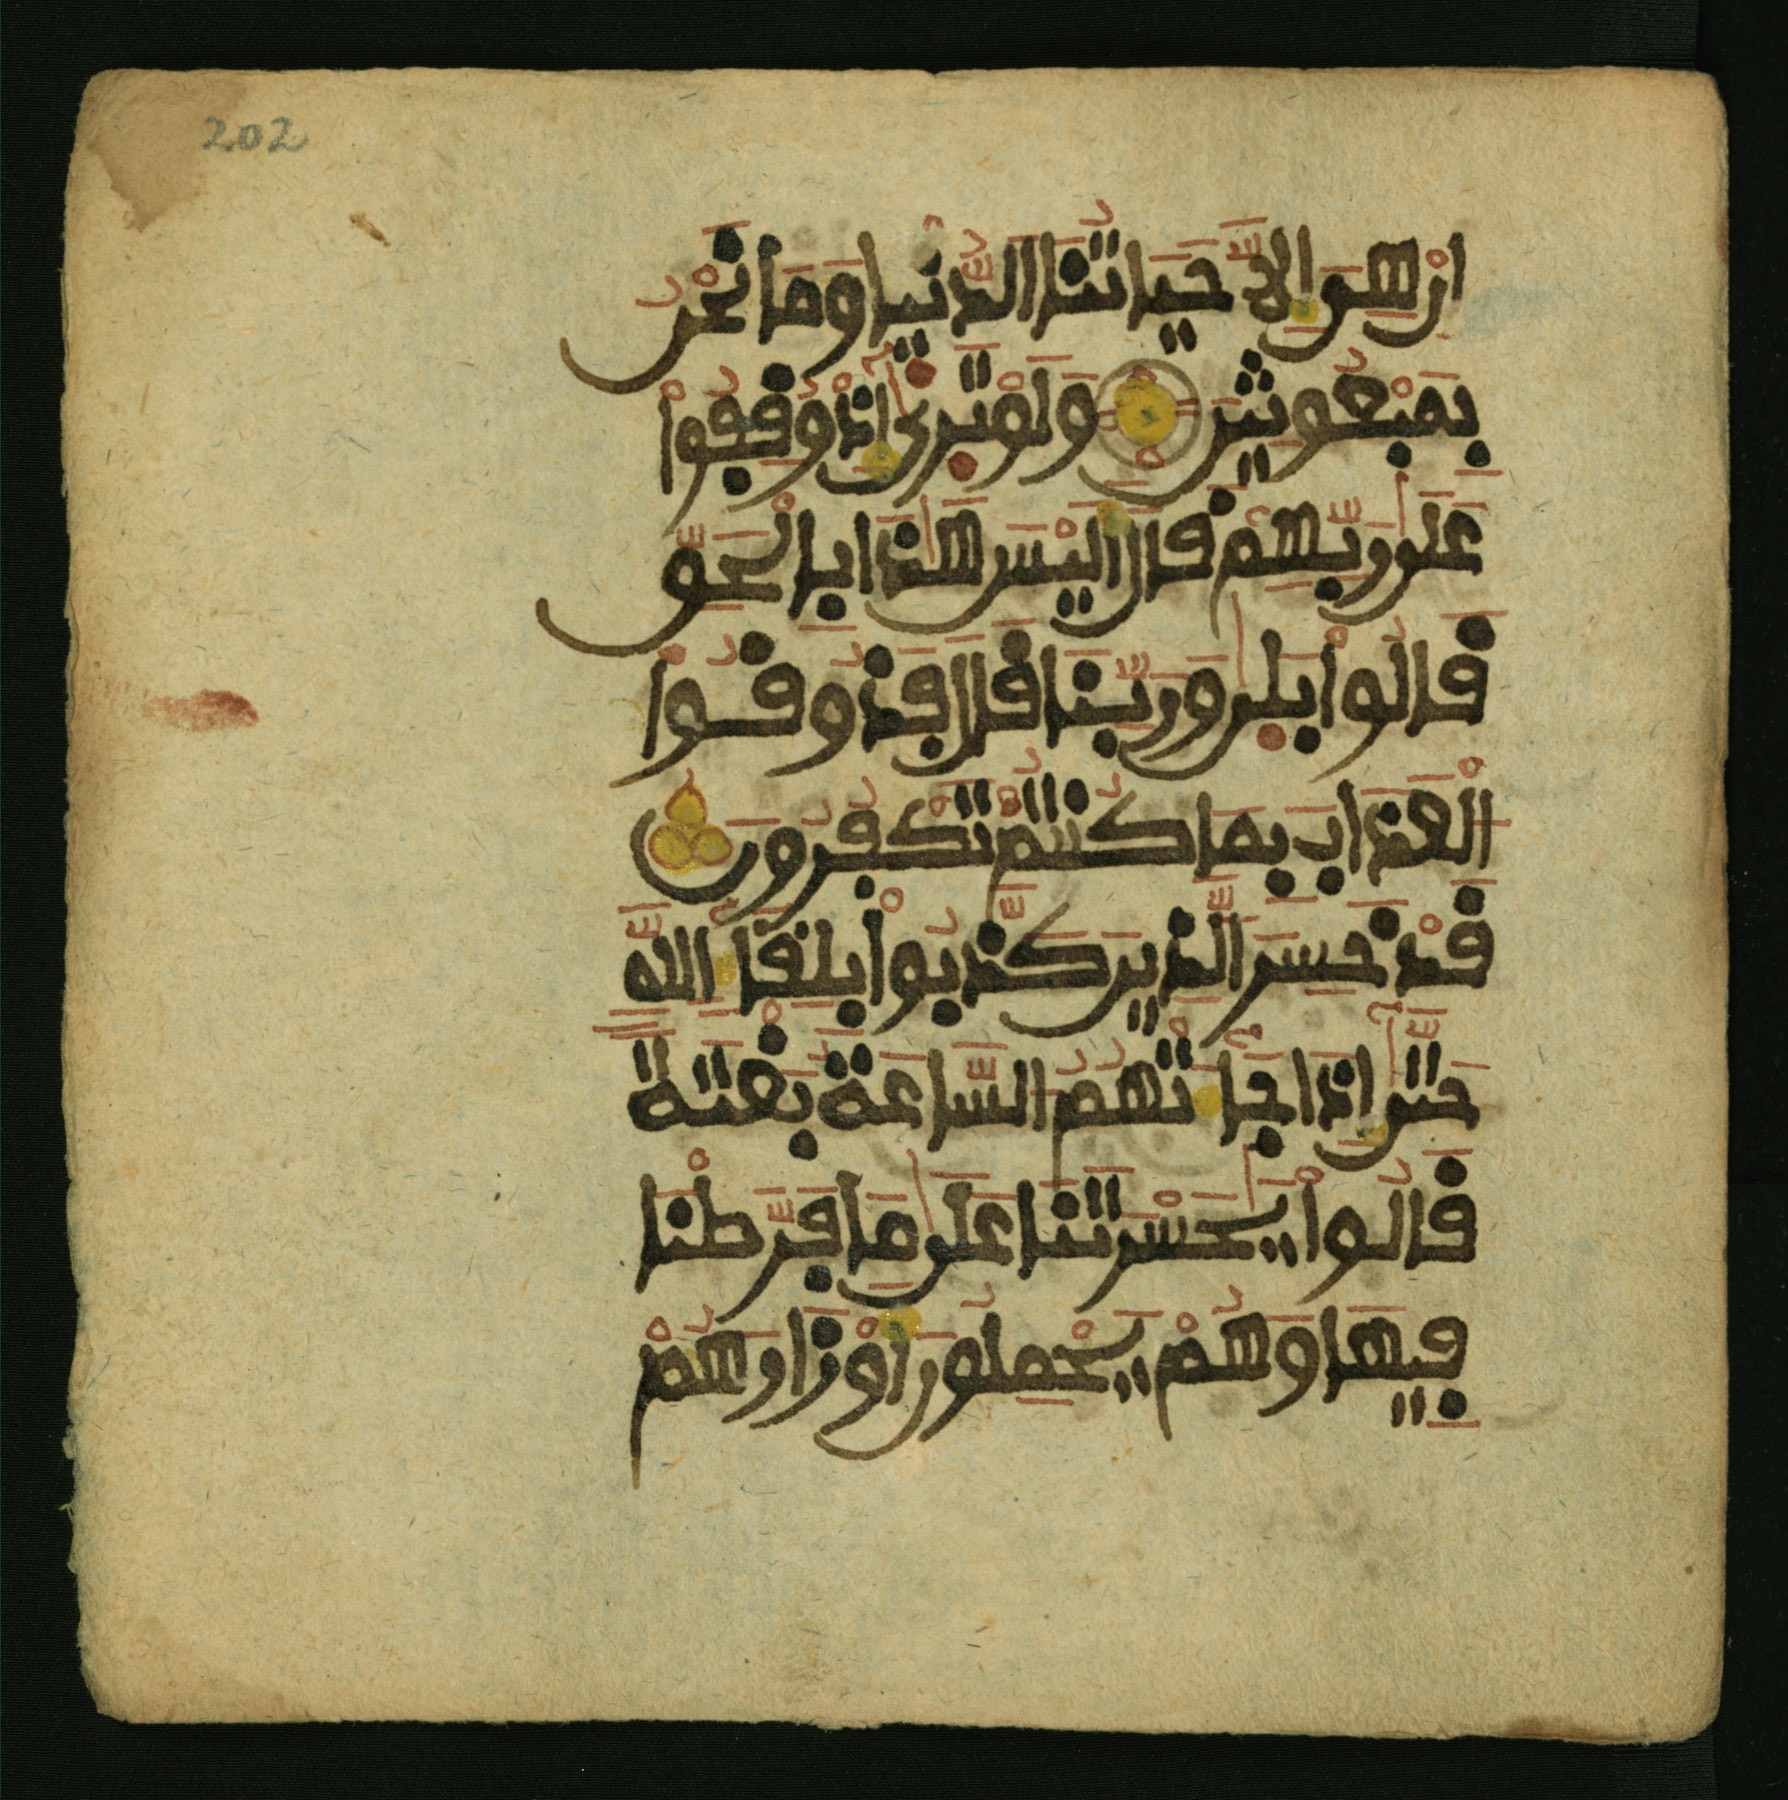 202
إن هو إلا حياتنا الدنيا وما نحن
بمبعوثين ولو ترى إذ وقفوا
على ربهم قال أليس هذا بالحق
قالوا بلى وربنا قال فذوقوا
العذاب بما كنتم تكفرون
قد خسر الذين كذبوا بلقاء الله
حتى إذا جاءتهم الساعة بغتة
قالوا يحسرتنا على ما فرطنا
فيها وهم يحملون أوزارهم